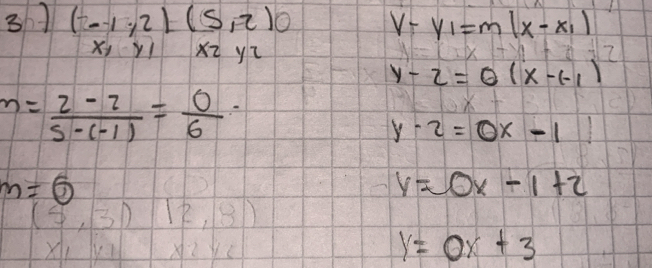 3) (-1,2) (5,2)
x1 y1 x2 y2
m = 2-2 / 5-(-1) = 0/6
m = 0
(5,3) (2,8)
x1 y1 x2 y2
y - y1 = m(x - x1)
y - 2 = 0(x-(-1)
y - 2 = 0x - 1
y = 0x - 1 + 2
y = 0x + 3